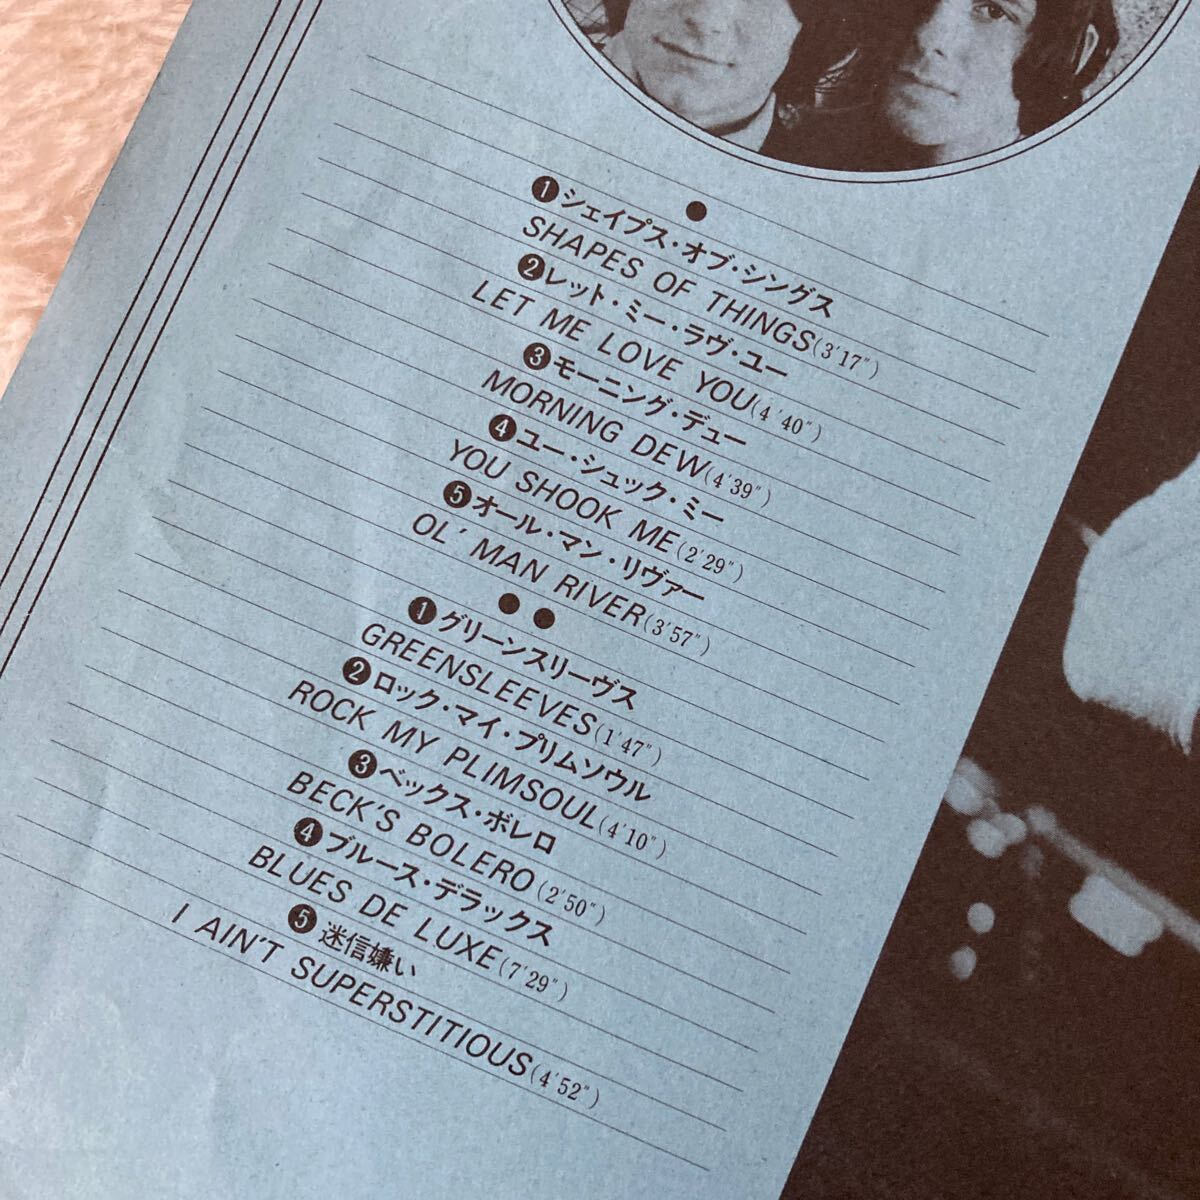 ●
❶シェイプス・オブ・シングス
SHAPES OF THINGS(3'17")
❷レット・ミー・ラヴ・ユー
LET ME LOVE YOU(4'40")
❸モーニング・デュー
MORNING DEW(4'39")
❹ユー・シュック・ミー
YOU SHOOK ME(2'29")
❺オール・マン・リヴァー
OL' MAN RIVER(3'57")
●●
❶グリーンスリーヴス
GREENSLEEVES(1'47")
❷ロック・マイ・プリムソウル
ROCK MY PLIMSOUL(4'10")
❸ベックス・ボレロ
BECK'S BOLERO(2'50")
❹ブルース・デラックス
BLUES DE LUXE(7'29")
❺迷信嫌い
I AIN'T SUPERSTITIOUS(4'52")